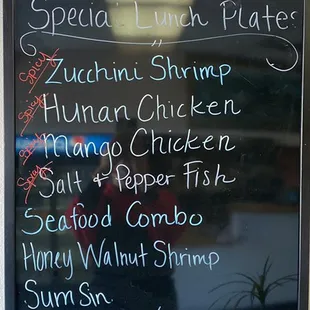 Special Lunch Plates
Spicy Zucchini Shrimp
Spicy Hunan Chicken
Spicy Mango Chicken
Spicy Salt & Pepper Fish
Seafood Combo
Honey Walnut Shrimp
Sum Sin